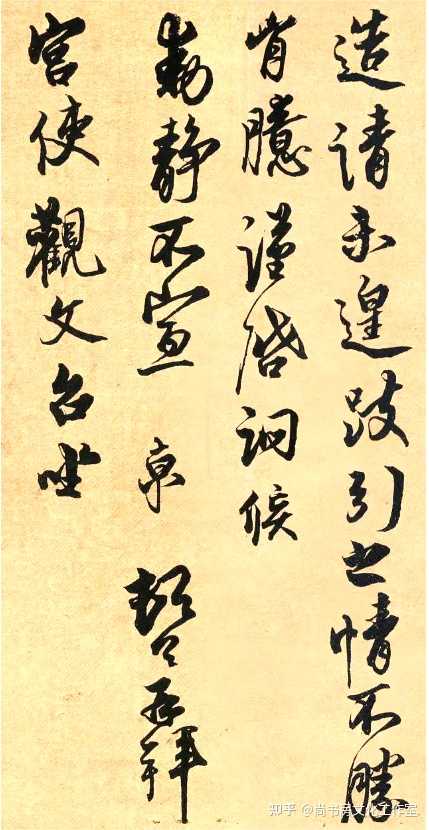 造請未遑跂引之情不勝
胷臆謹啓詗候
動靜不宣 京 頓首再拜
宮使觀文台坐
知乎 @尚书君文化工作室